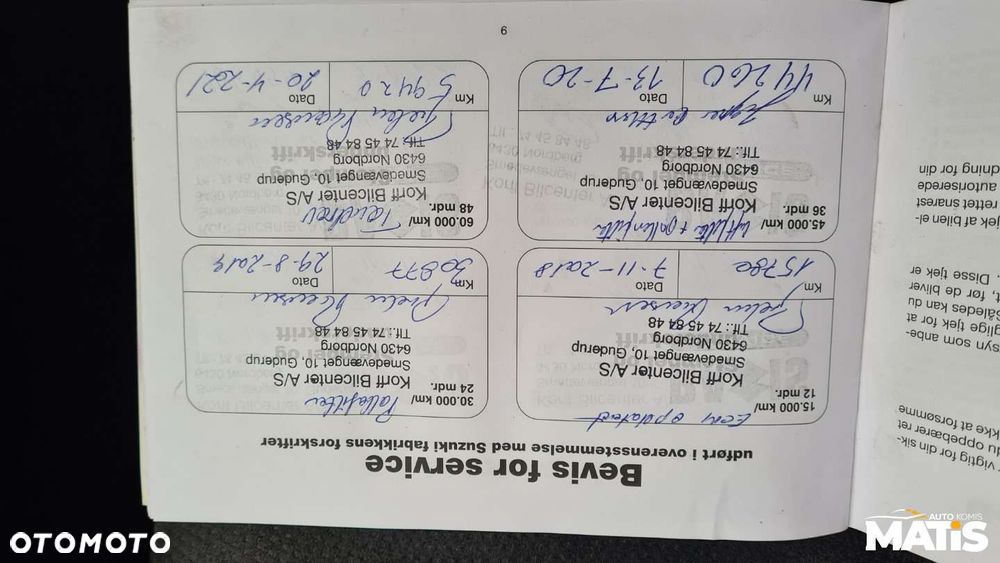 vigtig for din sik-
du oppebærer ret
kke at forsømme
syn som anbe-
llige tjek for at
Således kan du
t, før de bliver
. Disse tjek er
tjek af bilen el-
rettet snarest
autoriserede
dning for din
Bevis for service
udført i overensstemmelse med Suzuki fabrikkens forskrifter
15.000 km/
12 mdr.
ECM opdateret
Korff Bilcenter A/S
Smedevænget 10, Guderup
6430 Nordborg
Tlf.: 74 45 84 48
Km
15780
Dato
7-11-2018
30.000 km/
24 mdr.
Pollenfilter
Korff Bilcenter A/S
Smedevænget 10, Guderup
6430 Nordborg
Tlf.: 74 45 84 48
Km
30877
Dato
29-8-2019
45.000 km/
36 mdr.
Luftfilter + pollenfilter
Korff Bilcenter A/S
Smedevænget 10, Guderup
6430 Nordborg
Tlf.: 74 45 84 48
Km
44260
Dato
13-7-20
60.000 km/
48 mdr.
Korff Bilcenter A/S
Smedevænget 10, Guderup
6430 Nordborg
Tlf.: 74 45 84 48
Km
59420
Dato
20-4-2021
6
OTOMOTO
AUTO KOMIS
MATIS